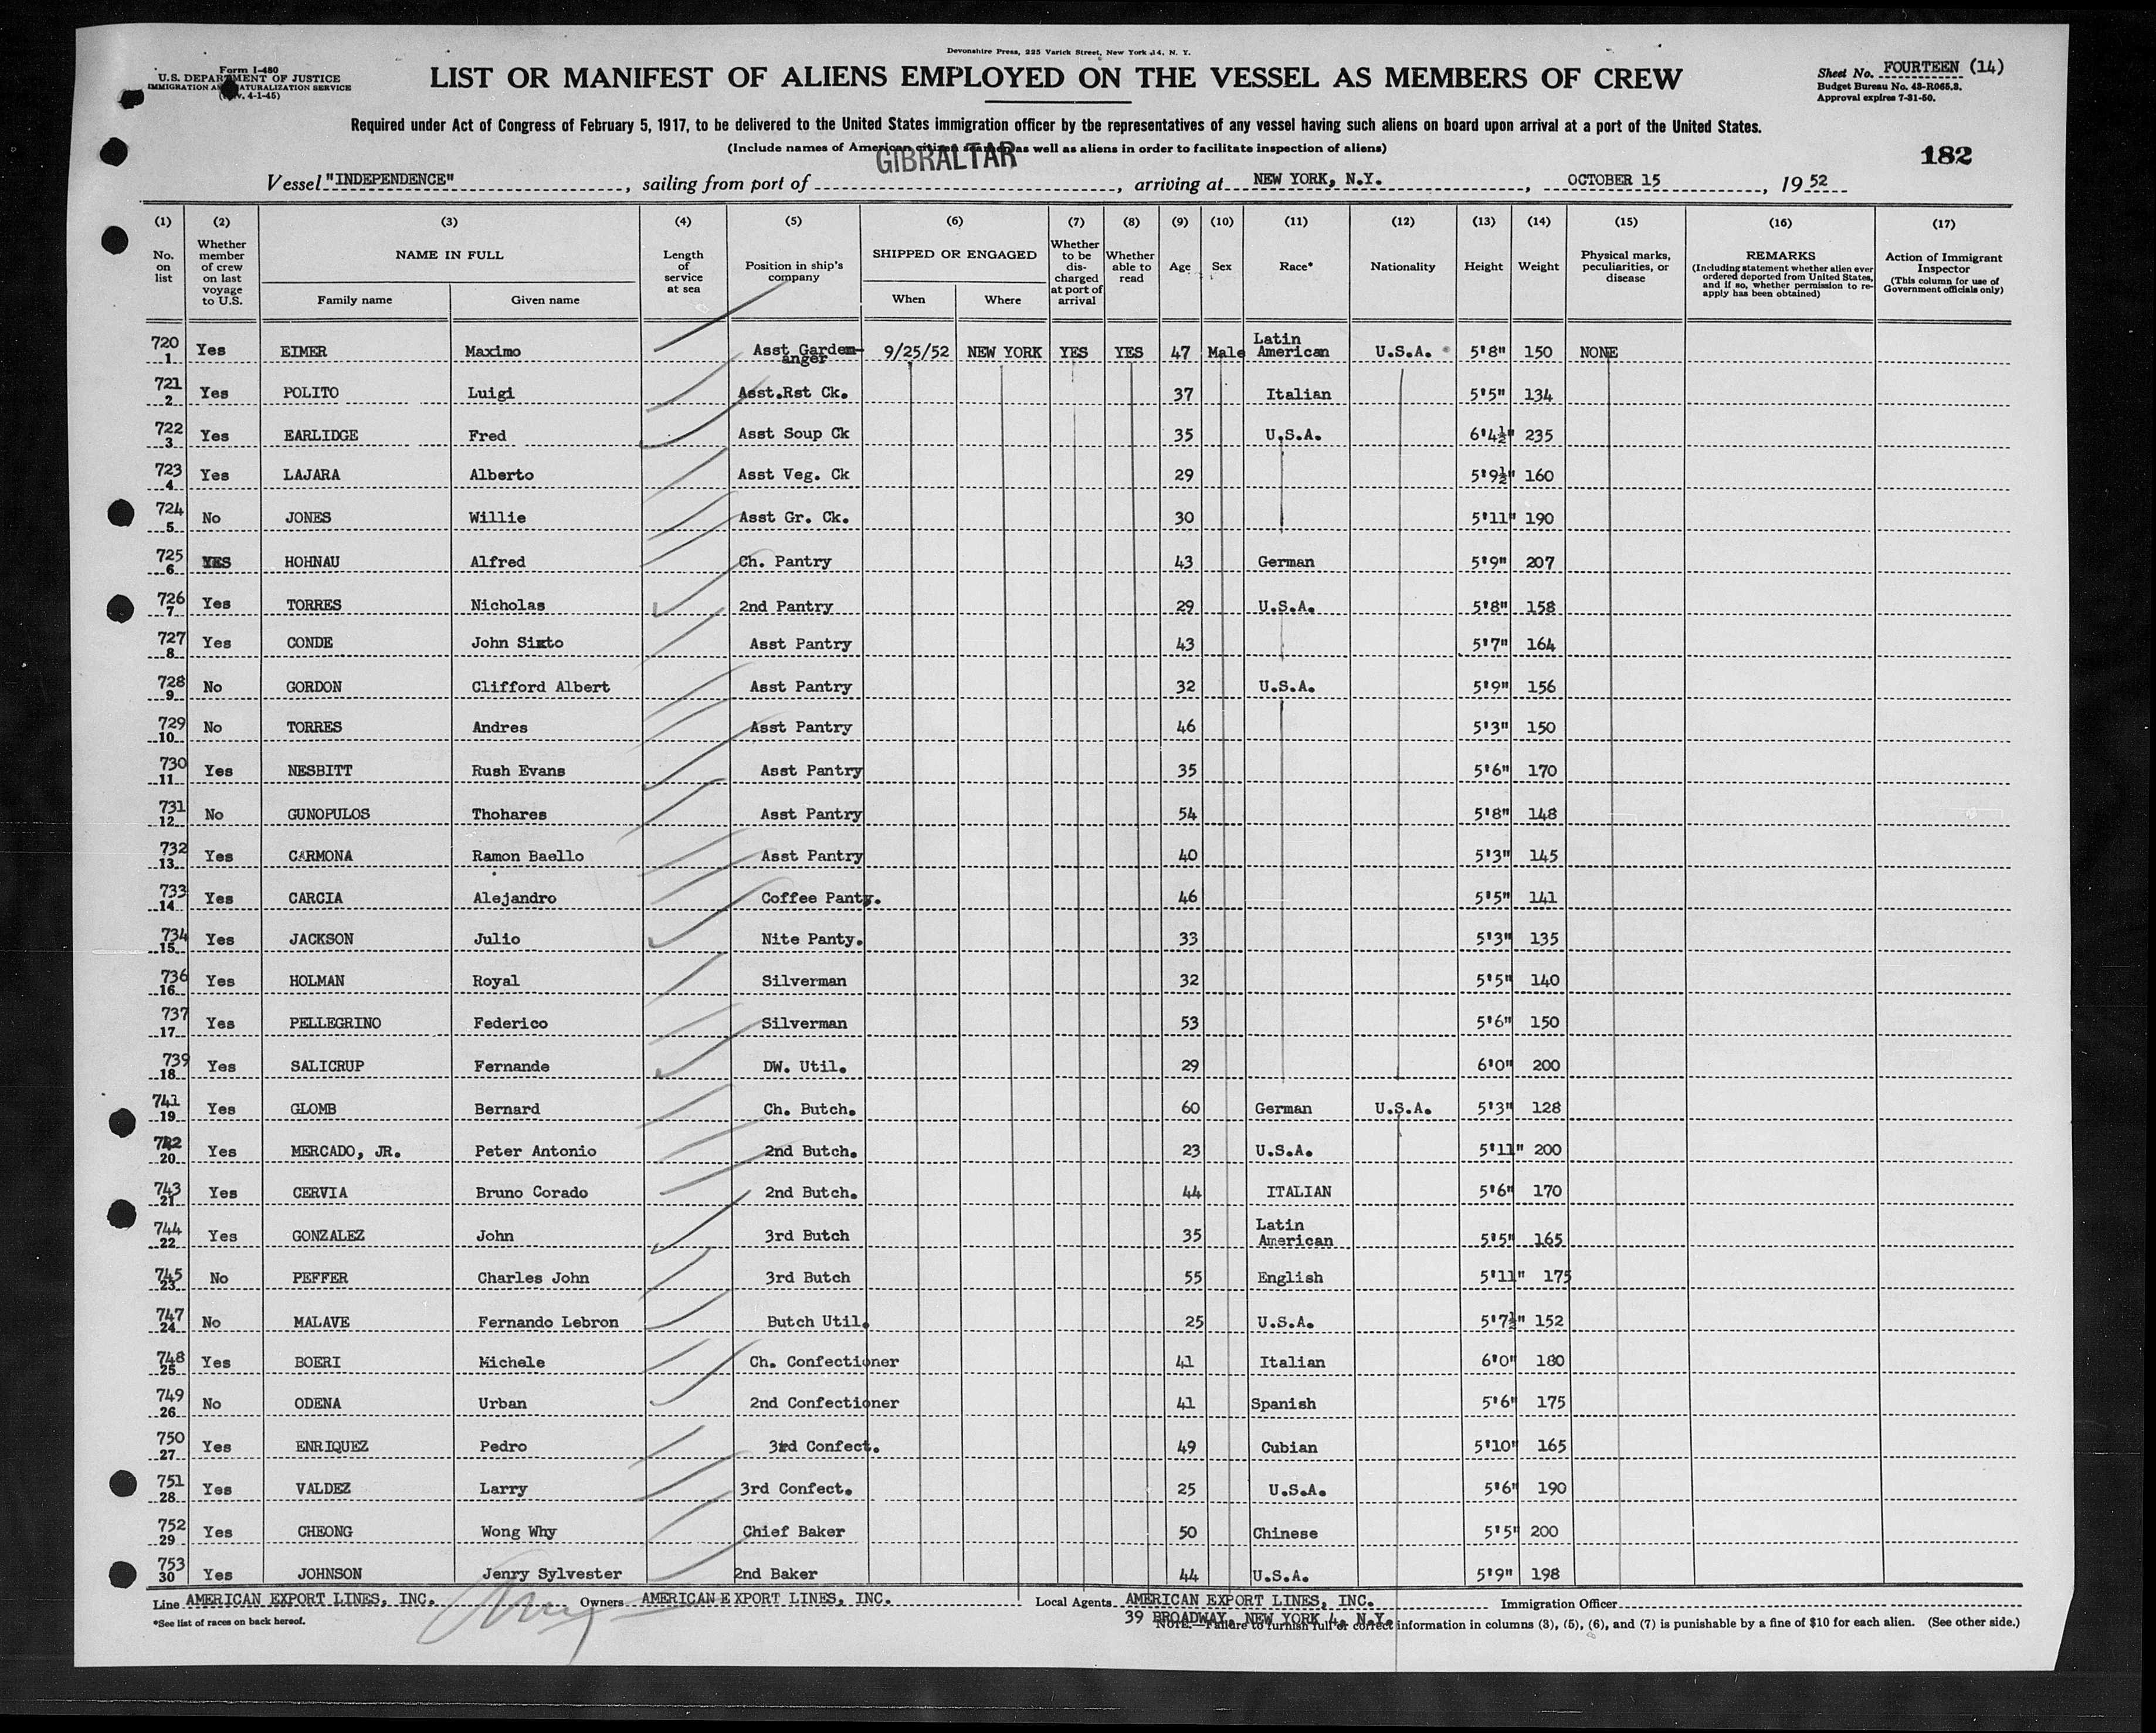 Devonshire Press, 225 Varick Street, New York 14, N. Y.
Form I-480
U.S. DEPARTMENT OF JUSTICE
IMMIGRATION AND NATURALIZATION SERVICE
(Rev. 4-1-45)
LIST OR MANIFEST OF ALIENS EMPLOYED ON THE VESSEL AS MEMBERS OF CREW
Sheet No. FOURTEEN (14)
Budget Bureau No. 43-R065.3.
Approval expires 7-31-50.
Required under Act of Congress of February 5, 1917, to be delivered to the United States immigration officer by the representatives of any vessel having such aliens on board upon arrival at a port of the United States.
(Include names of American citizen seamen as well as aliens in order to facilitate inspection of aliens)
182
Vessel "INDEPENDENCE", sailing from port of GIBRALTAR, arriving at NEW YORK, N.Y., OCTOBER 15, 1952
(1) (2) (3) (4) (5) (6) (7) (8) (9) (10) (11) (12) (13) (14) (15) (16) (17)
No. on list
Whether member of crew on last voyage to U.S.
NAME IN FULL
Family name Given name
Length of service at sea
Position in ship's company
SHIPPED OR ENGAGED
When Where
Whether to be discharged at port of arrival
Whether able to read
Age
Sex
Race*
Nationality
Height
Weight
Physical marks, peculiarities, or disease
REMARKS
(Including statement whether alien ever ordered deported from United States, and if so, whether permission to re-apply has been obtained)
Action of Immigrant Inspector
(This column for use of Government officials only)
720 1 Yes EIMER Maximo Asst Gardemanger 9/25/52 NEW YORK YES YES 47 Male Latin American U.S.A. 5'8" 150 NONE
721 2 Yes POLITO Luigi Asst.Rst Ck. 37 Italian 5'5" 134
722 3 Yes EARLIDGE Fred Asst Soup Ck 35 U.S.A. 6'4½" 235
723 4 Yes LAJARA Alberto Asst Veg. Ck 29 5'9½" 160
724 5 No JONES Willie Asst Gr. Ck. 30 5'11" 190
725 6 YES HOHNAU Alfred Ch. Pantry 43 German 5'9" 207
726 7 Yes TORRES Nicholas 2nd Pantry 29 U.S.A. 5'8" 158
727 8 Yes CONDE John Sixto Asst Pantry 43 5'7" 164
728 9 No GORDON Clifford Albert Asst Pantry 32 U.S.A. 5'9" 156
729 10 No TORRES Andres Asst Pantry 46 5'3" 150
730 11 Yes NESBITT Rush Evans Asst Pantry 35 5'6" 170
731 12 No GUNOPULOS Thohares Asst Pantry 54 5'8" 148
732 13 Yes CARMONA Ramon Baello Asst Pantry 40 5'3" 145
733 14 Yes CARCIA Alejandro Coffee Panty. 46 5'5" 141
734 15 Yes JACKSON Julio Nite Panty. 33 5'3" 135
736 16 Yes HOLMAN Royal Silverman 32 5'5" 140
737 17 Yes PELLEGRINO Federico Silverman 53 5'6" 150
739 18 Yes SALICRUP Fernande DW. Util. 29 6'0" 200
741 19 Yes GLOMB Bernard Ch. Butch. 60 German U.S.A. 5'3" 128
742 20 Yes MERCADO, JR. Peter Antonio 2nd Butch. 23 U.S.A. 5'11" 200
743 21 Yes CERVIA Bruno Corado 2nd Butch. 44 ITALIAN 5'6" 170
744 22 Yes GONZALEZ John 3rd Butch 35 Latin American 5'5" 165
745 23 No PEFFER Charles John 3rd Butch 55 English 5'11" 175
747 24 No MALAVE Fernando Lebron Butch Util. 25 U.S.A. 5'7½" 152
748 25 Yes BOERI Michele Ch. Confectioner 41 Italian 6'0" 180
749 26 No ODENA Urban 2nd Confectioner 41 Spanish 5'6" 175
750 27 Yes ENRIQUEZ Pedro 3rd Confect. 49 Cubian 5'10" 165
751 28 Yes VALDEZ Larry 3rd Confect. 25 U.S.A. 5'6" 190
752 29 Yes CHEONG Wong Why Chief Baker 50 Chinese 5'5" 200
753 30 Yes JOHNSON Jenry Sylvester 2nd Baker 44 U.S.A. 5'9" 198
Line AMERICAN EXPORT LINES, INC. Owners AMERICAN EXPORT LINES, INC. Local Agents AMERICAN EXPORT LINES, INC. Immigration Officer
39 BROADWAY, NEW YORK 4, N.Y.
*See list of races on back hereof.
NOTE.—Failure to furnish full or correct information in columns (3), (5), (6), and (7) is punishable by a fine of $10 for each alien. (See other side.)